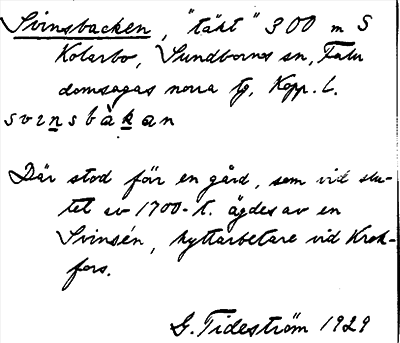 Svinsbacken, "täkt" 300 m S
Kolarbo, Sundborns sn, Falu
domsagas norra tg, Kopp. l.
svinsbàkan
Där stod förr en gård, som vid slu-
tet av 1700-t. ägdes av en
Svinsén, hyttarbetare vid Krok-
fors.
G. Tideström 1929